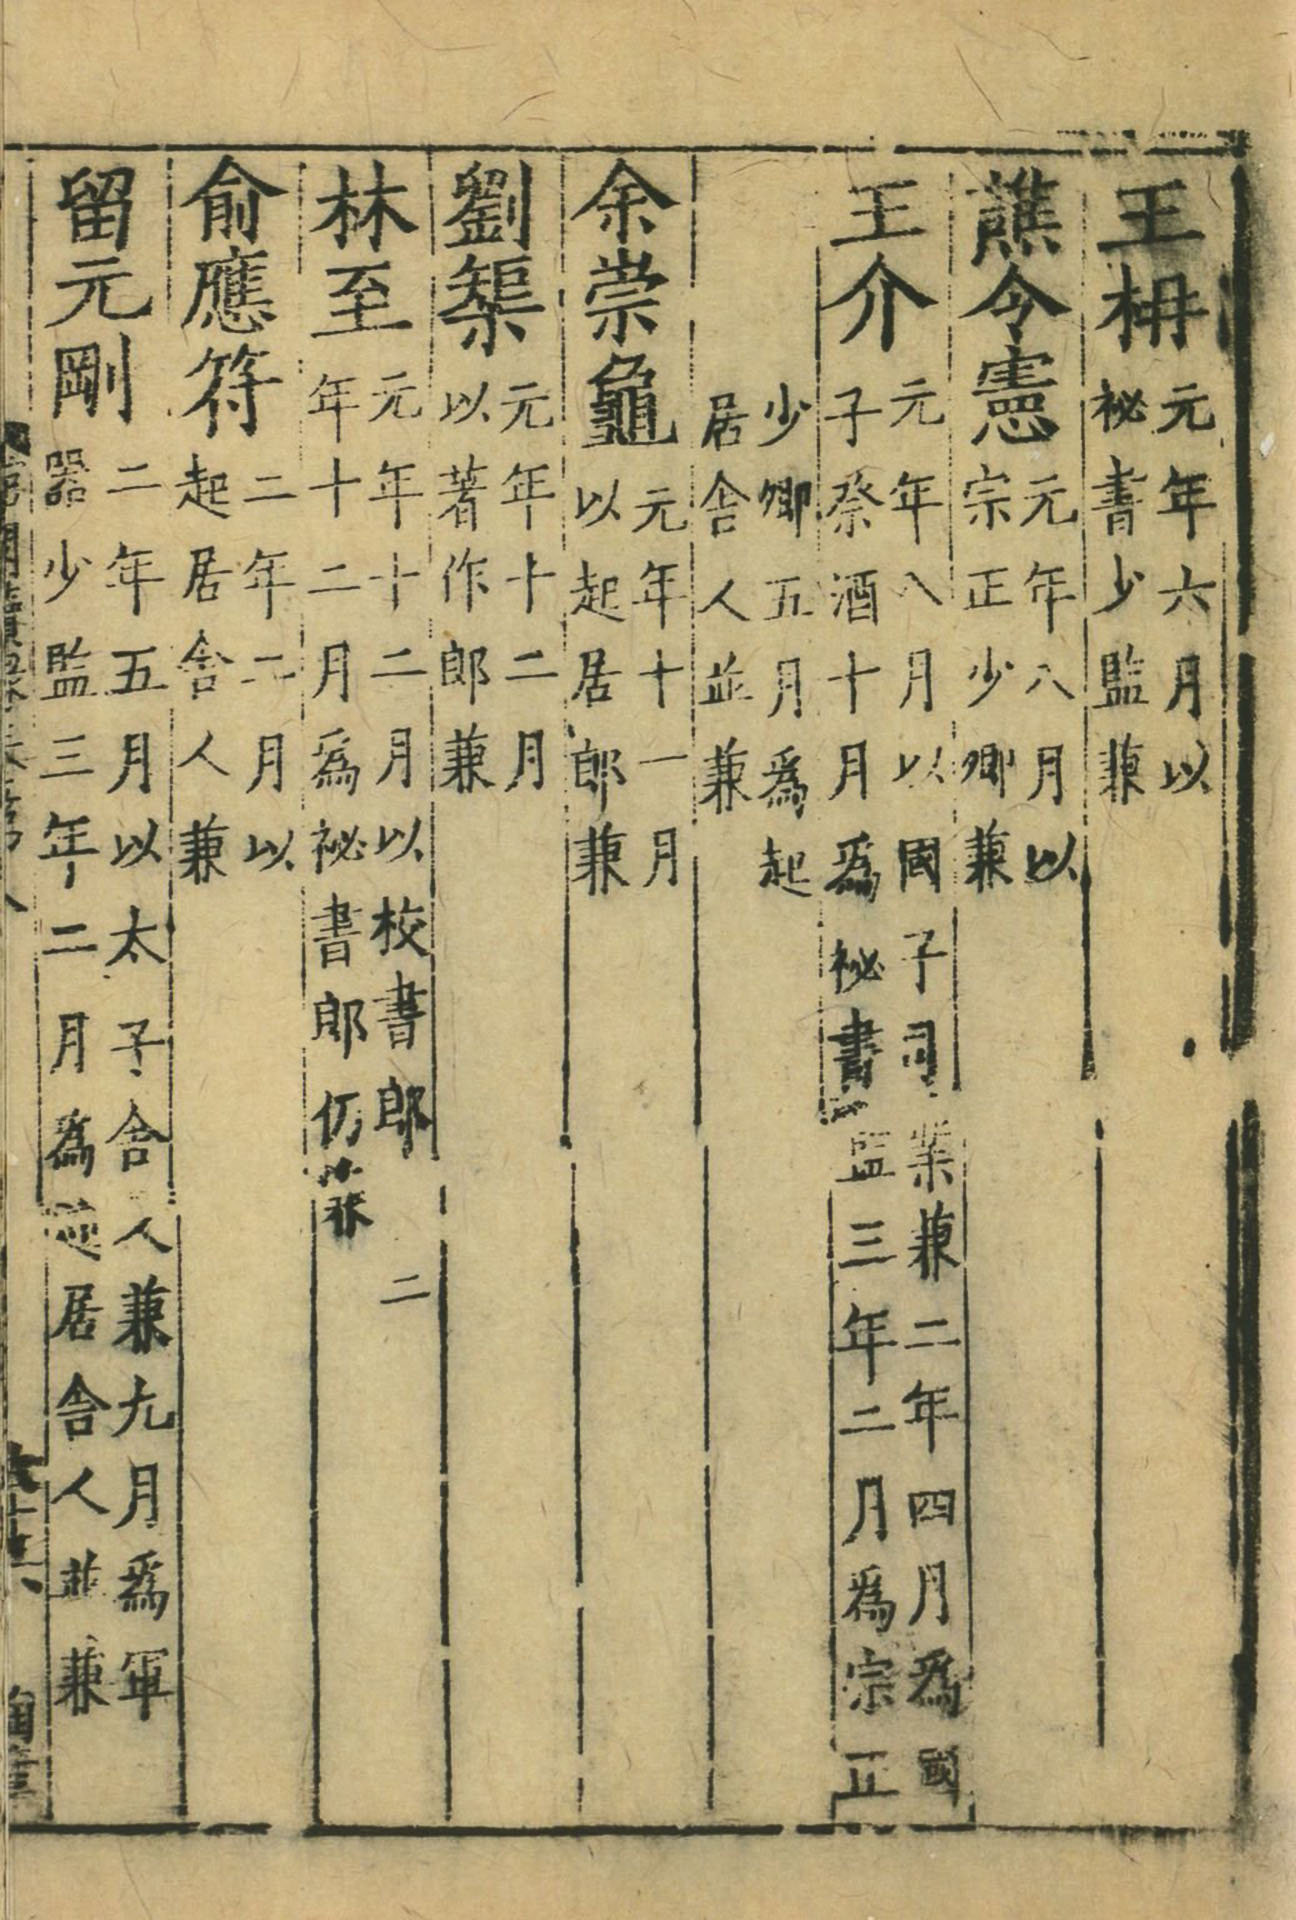 王枏元年六月以秘書少監兼
譙令憲元年八月以宗正少卿兼
王介元年八月以國子司業兼二年四月爲國子祭酒十月爲祕書監三年二月爲宗正
少卿五月爲起居舍人並兼
余崇龜元年十一月以起居郎兼
劉榘元年十二月以著作郎兼
林至元年十二月以校書郎二年十二月爲祕書郎仍兼
俞應符二年二月以起居舍人兼
留元剛二年五月以太子舍人兼九月爲軍器少監三年二月爲起居舍人並兼